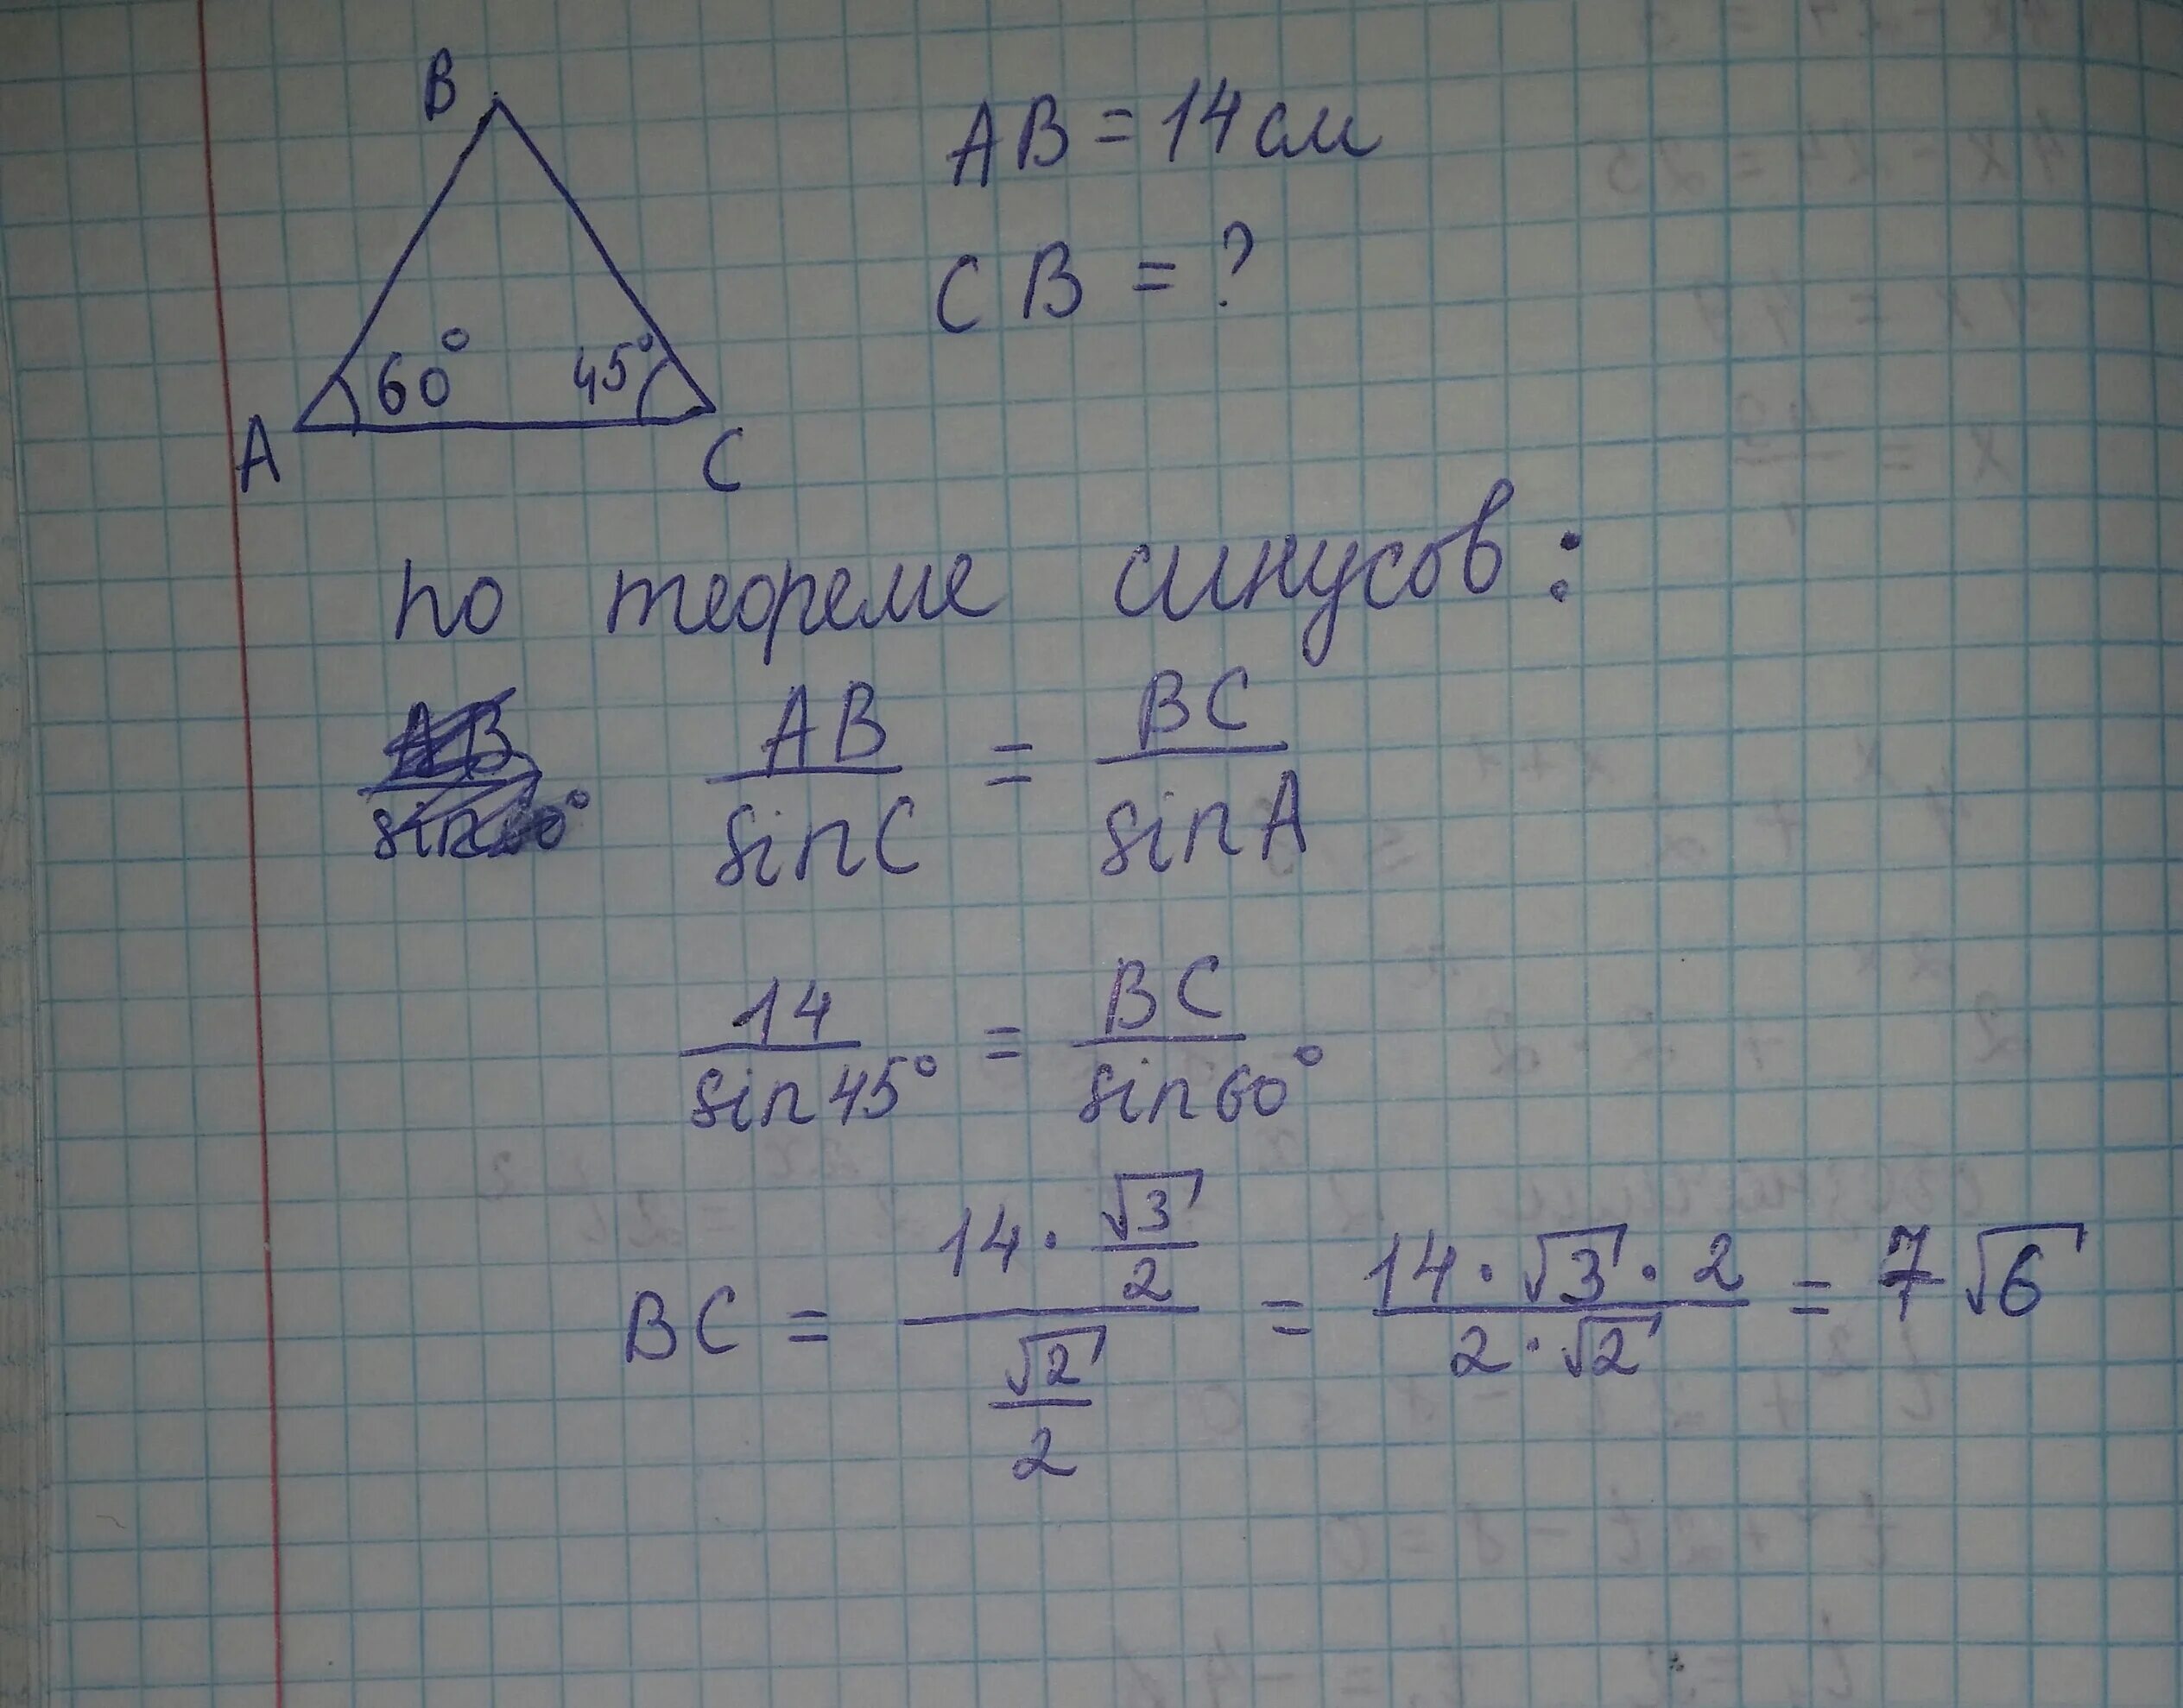 B
AB = 14 см
CB = ?
60° 45°
A C
по теореме синусов:
AB/sin C = BC/sin A
14/sin 45° = BC/sin 60°
BC = (14 · √3/2)/(√2/2) = (14 · √3 · 2)/(2 · √2) = 7√6